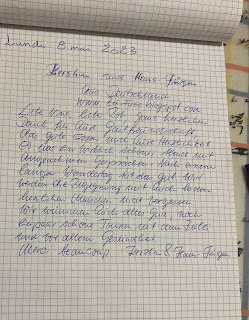 Lundi 8 mai 2023
Kerstin und Hans-Jürgen
aus Deutschland
www. .blogspot.com
Liebe liebe ganz herzlichen
Dank für Eure Gastfreundschaft
das gute Essen und Eure Herzlichkeit
Es war ein wirklich schöner Abend mit
angenehmen Gesprächen. Nach einem
langen Wandertag tut das gut. Wir
werden die Begegnung mit Euch beiden
herzlichen Menschen nicht vergessen
Wir wünschen Euch alles Gute, noch
schöne Touren mit dem
und vor allem Gesundheit
Merci beaucoup Kerstin & Hans-Jürgen